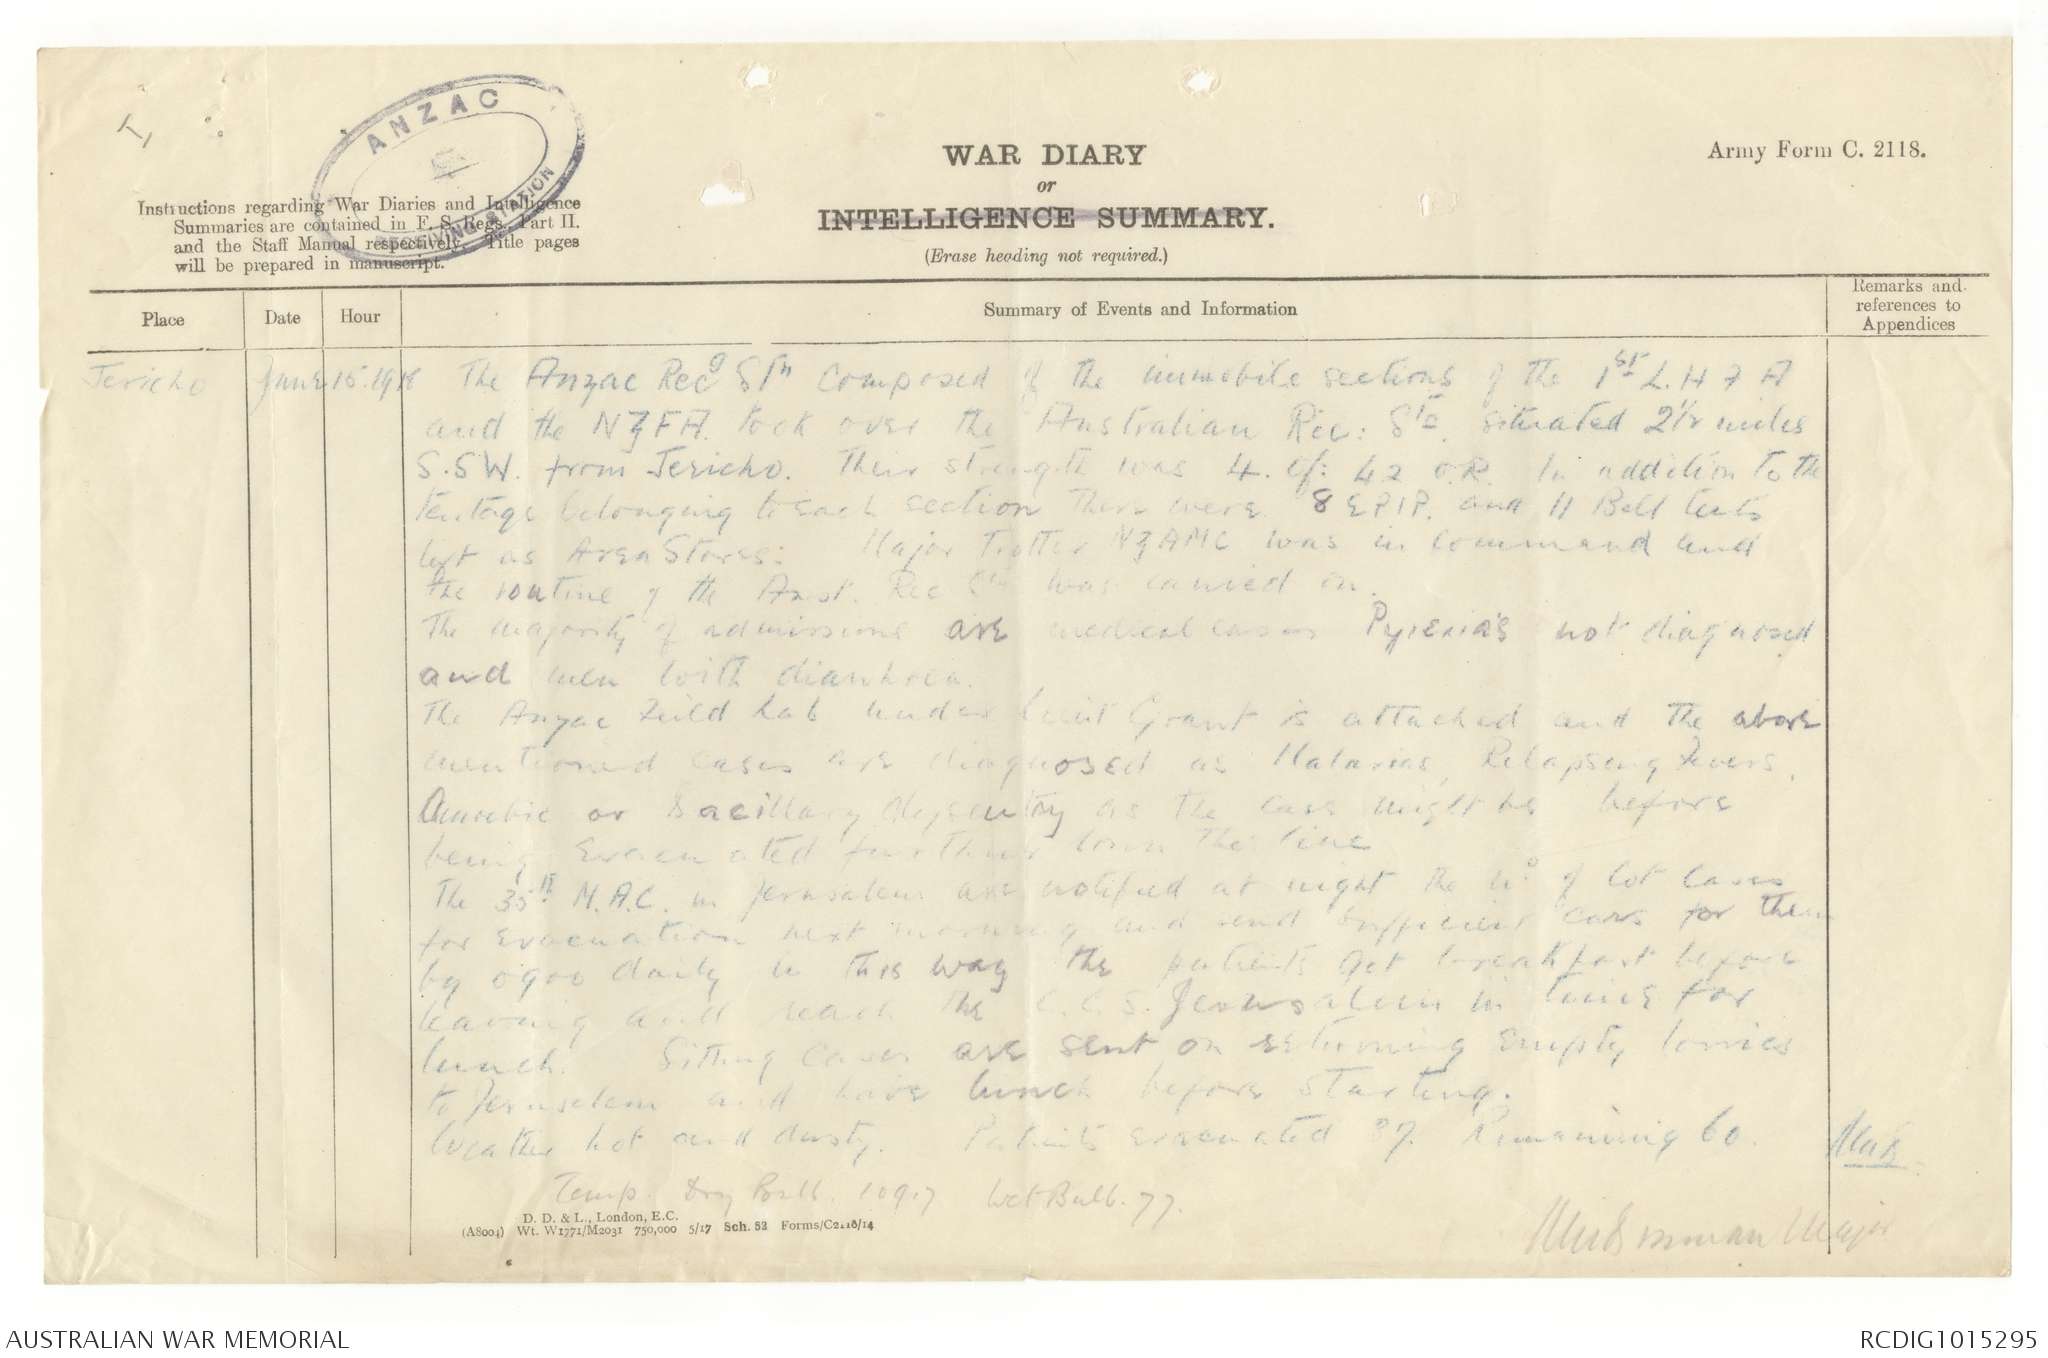 ANZAC
RECEIVING STATION
WAR DIARY
or
INTELLIGENCE SUMMARY.
(Erase heading not required.)
Army Form C. 2118.
Instructions regarding War Diaries and Intelligence
Summaries are contained in F. S. Regs., Part II.
and the Staff Manual respectively. Title pages
will be prepared in manuscript.
Place
Date
Hour
Summary of Events and Information
Remarks and
references to
Appendices
Jericho June 15. 1918 The Anzac Recg Stn composed of the immobile sections of the 1st L.H F A
and the NZFA. took over the Australian Rec: Stn. situated 2½ miles
S.SW. from Jericho. Their strength was 4. of: 42 O.R. In addition to the
tentage belonging to each section there were 8 EPIP. and 11 Bell tents
left as Area Stores: Major Trotter NZAMC was in command and
the routine of the Aust. Rec Stn was carried on.
The majority of admissions are medical cases Pyrexia's not diagnosed
and men with diarrhoea.
The Anzac Field Lab under Lieut Grant is attached and the above
mentioned cases are diagnosed as Malarias, Relapsing Fevers,
Amoebic or Bacillary dysentry as the case might be before
being evacuated further down the line
The 35th M.A.C. in Jerusalem are notified at night the No of cot cases
for evacuation next morning and send sufficient cars for them
by 0900 daily In this way the patients get breakfast before
leaving and reach the C.C.S. Jerusalem in time for
lunch. Sitting cases are sent on returning empty lorries
to Jerusalem and have lunch before starting.
Weather hot and dusty. Patients evacuated 37. Remaining 60.
Temp. Dry Bulb. 109.7 Wet Bulb. 77.
Major
D. D. & L., London, E.C.
(A8004) Wt. W1771/M2031 750,000 5/17 Sch. 52 Forms/C2118/14
AUSTRALIAN WAR MEMORIAL
RCDIG1015295